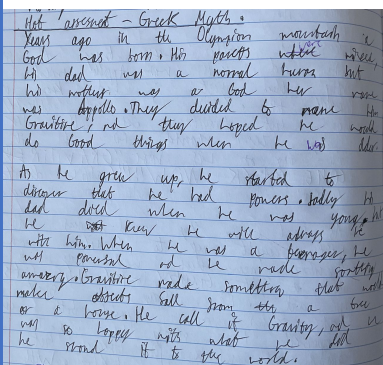 Hot assessment - Greek Myth.
Years ago in the Olympion mountain a
God was born. His parents were mixed,
his dad was a normal human but
his mother was a God her name
was Appollo. They decided to name him
Gravitive, and they hoped he would
do Good things when he was older.
As he grew up, he started to
discover that he had powers. Sadly his
dad died when he was young. But
he knew he will always be
with him. When he was a teenager, he
was powerful and he made something
amazing. Gravitive made something that would
make objects fall from a tree
or a house. He call it Gravity, and he
was so happy with what he did
he shond it to the world.